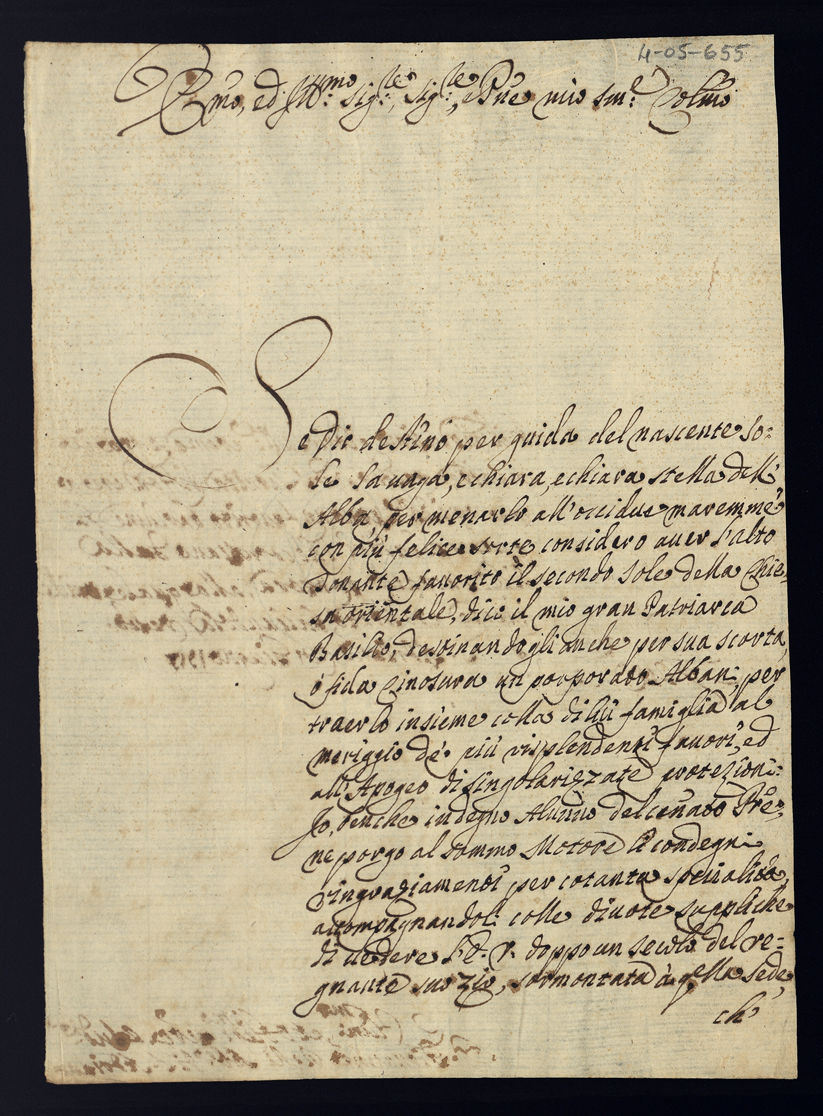 4-05-655
Emo, ed Illmo: Sigre, Sigre, e Pne mio Sme: Colmo
Se Dio destinò per guida del nascente So-
le la vaga, e chiara, e chiara stella dell'
Alba, per menarlo all'occidue maremme
con più felice sorte considero aver l'alto
Tonante favorito il secondo sole della Chie-
sa orientale, dico il mio gran Patriarca
Basilio, destinandogli anche per sua scorta,
ò fida Cinosura un porporato Albani, per
traerlo insieme colla di lui famiglia al
meriggio de' più risplendenti favori, ed
all'Apogeo di singolarizzate protezioni:
Io, benche indegno Alunno del cennato Pre,
ne porgo al sommo Motore li condegni
ringraziamenti per cotanta specialità,
accompagnandoli colle divote suppliche
di vedere V. E. doppo un secolo del re-
gnante suo Zio, sormontata à qella sede,
ch'